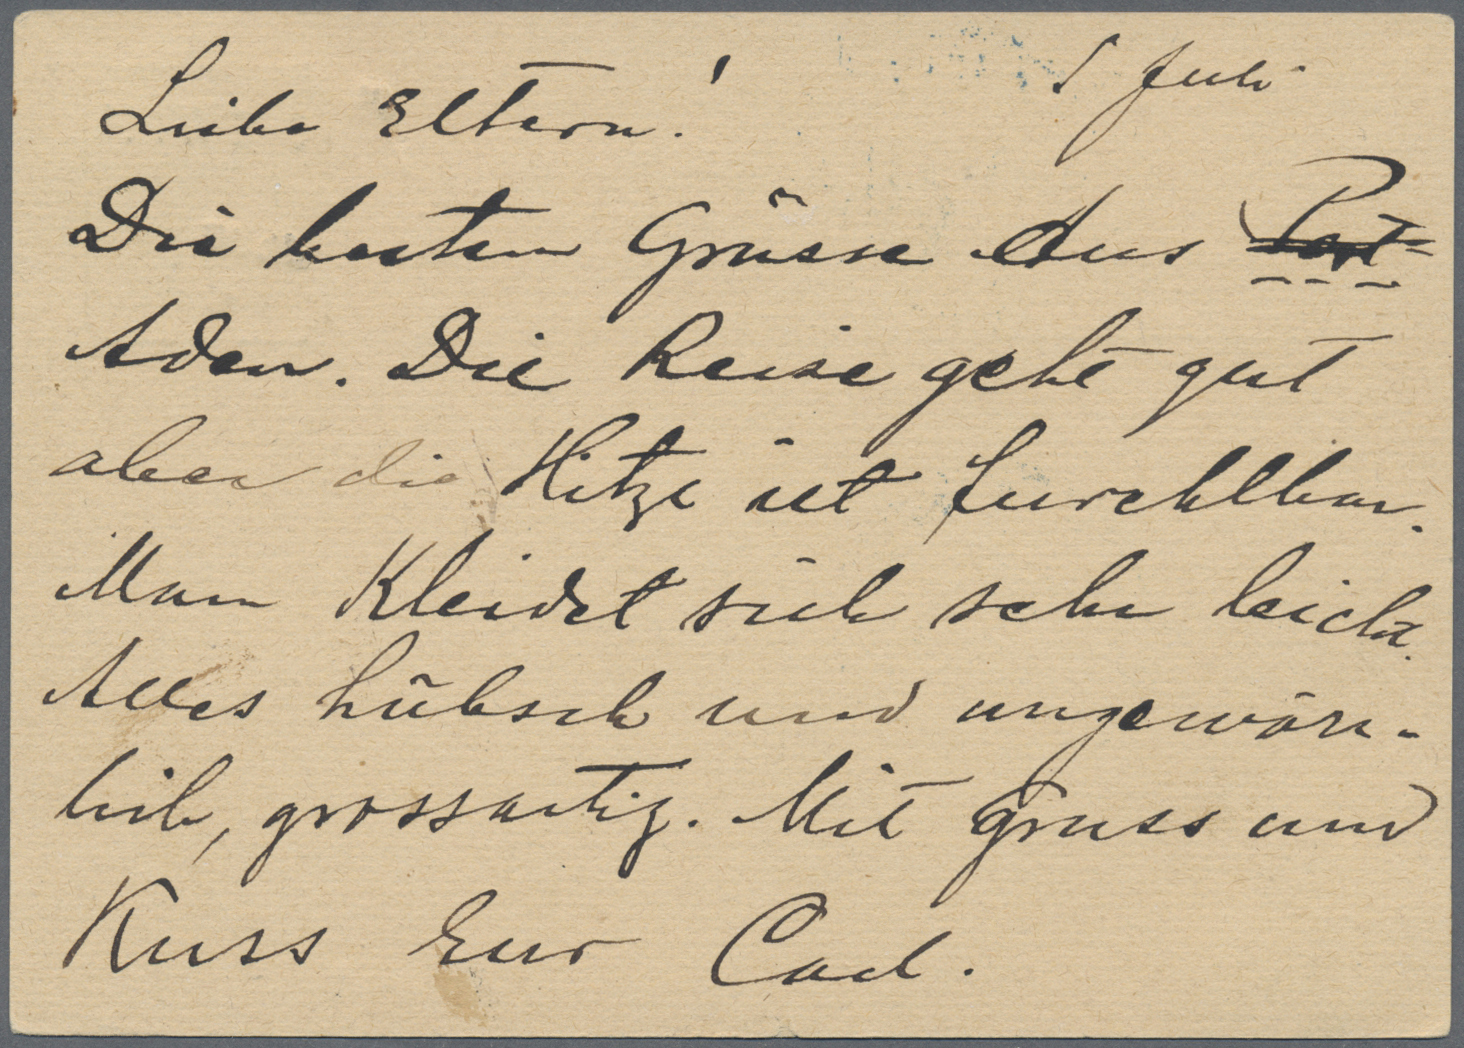 5 Juli
Liebe Eltern!
Die besten Grüsse aus Port
Aden. Die Reise geht gut
aber die Hitze ist furchtbar.
Man kleidet sich sehr leicht.
Alles hübsch und ungewön-
lich, grossartig. Mit Gruss und
Kuss Eur